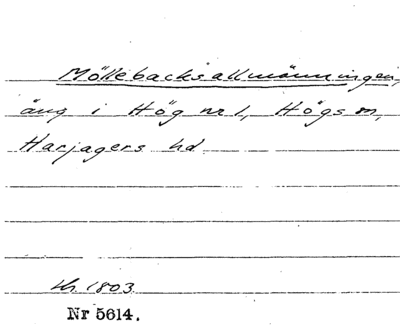 Möllebacksallmänningen,
äng i Hög nr 1, Högs sn,
Harjagers hd
1803
Nr 5614.